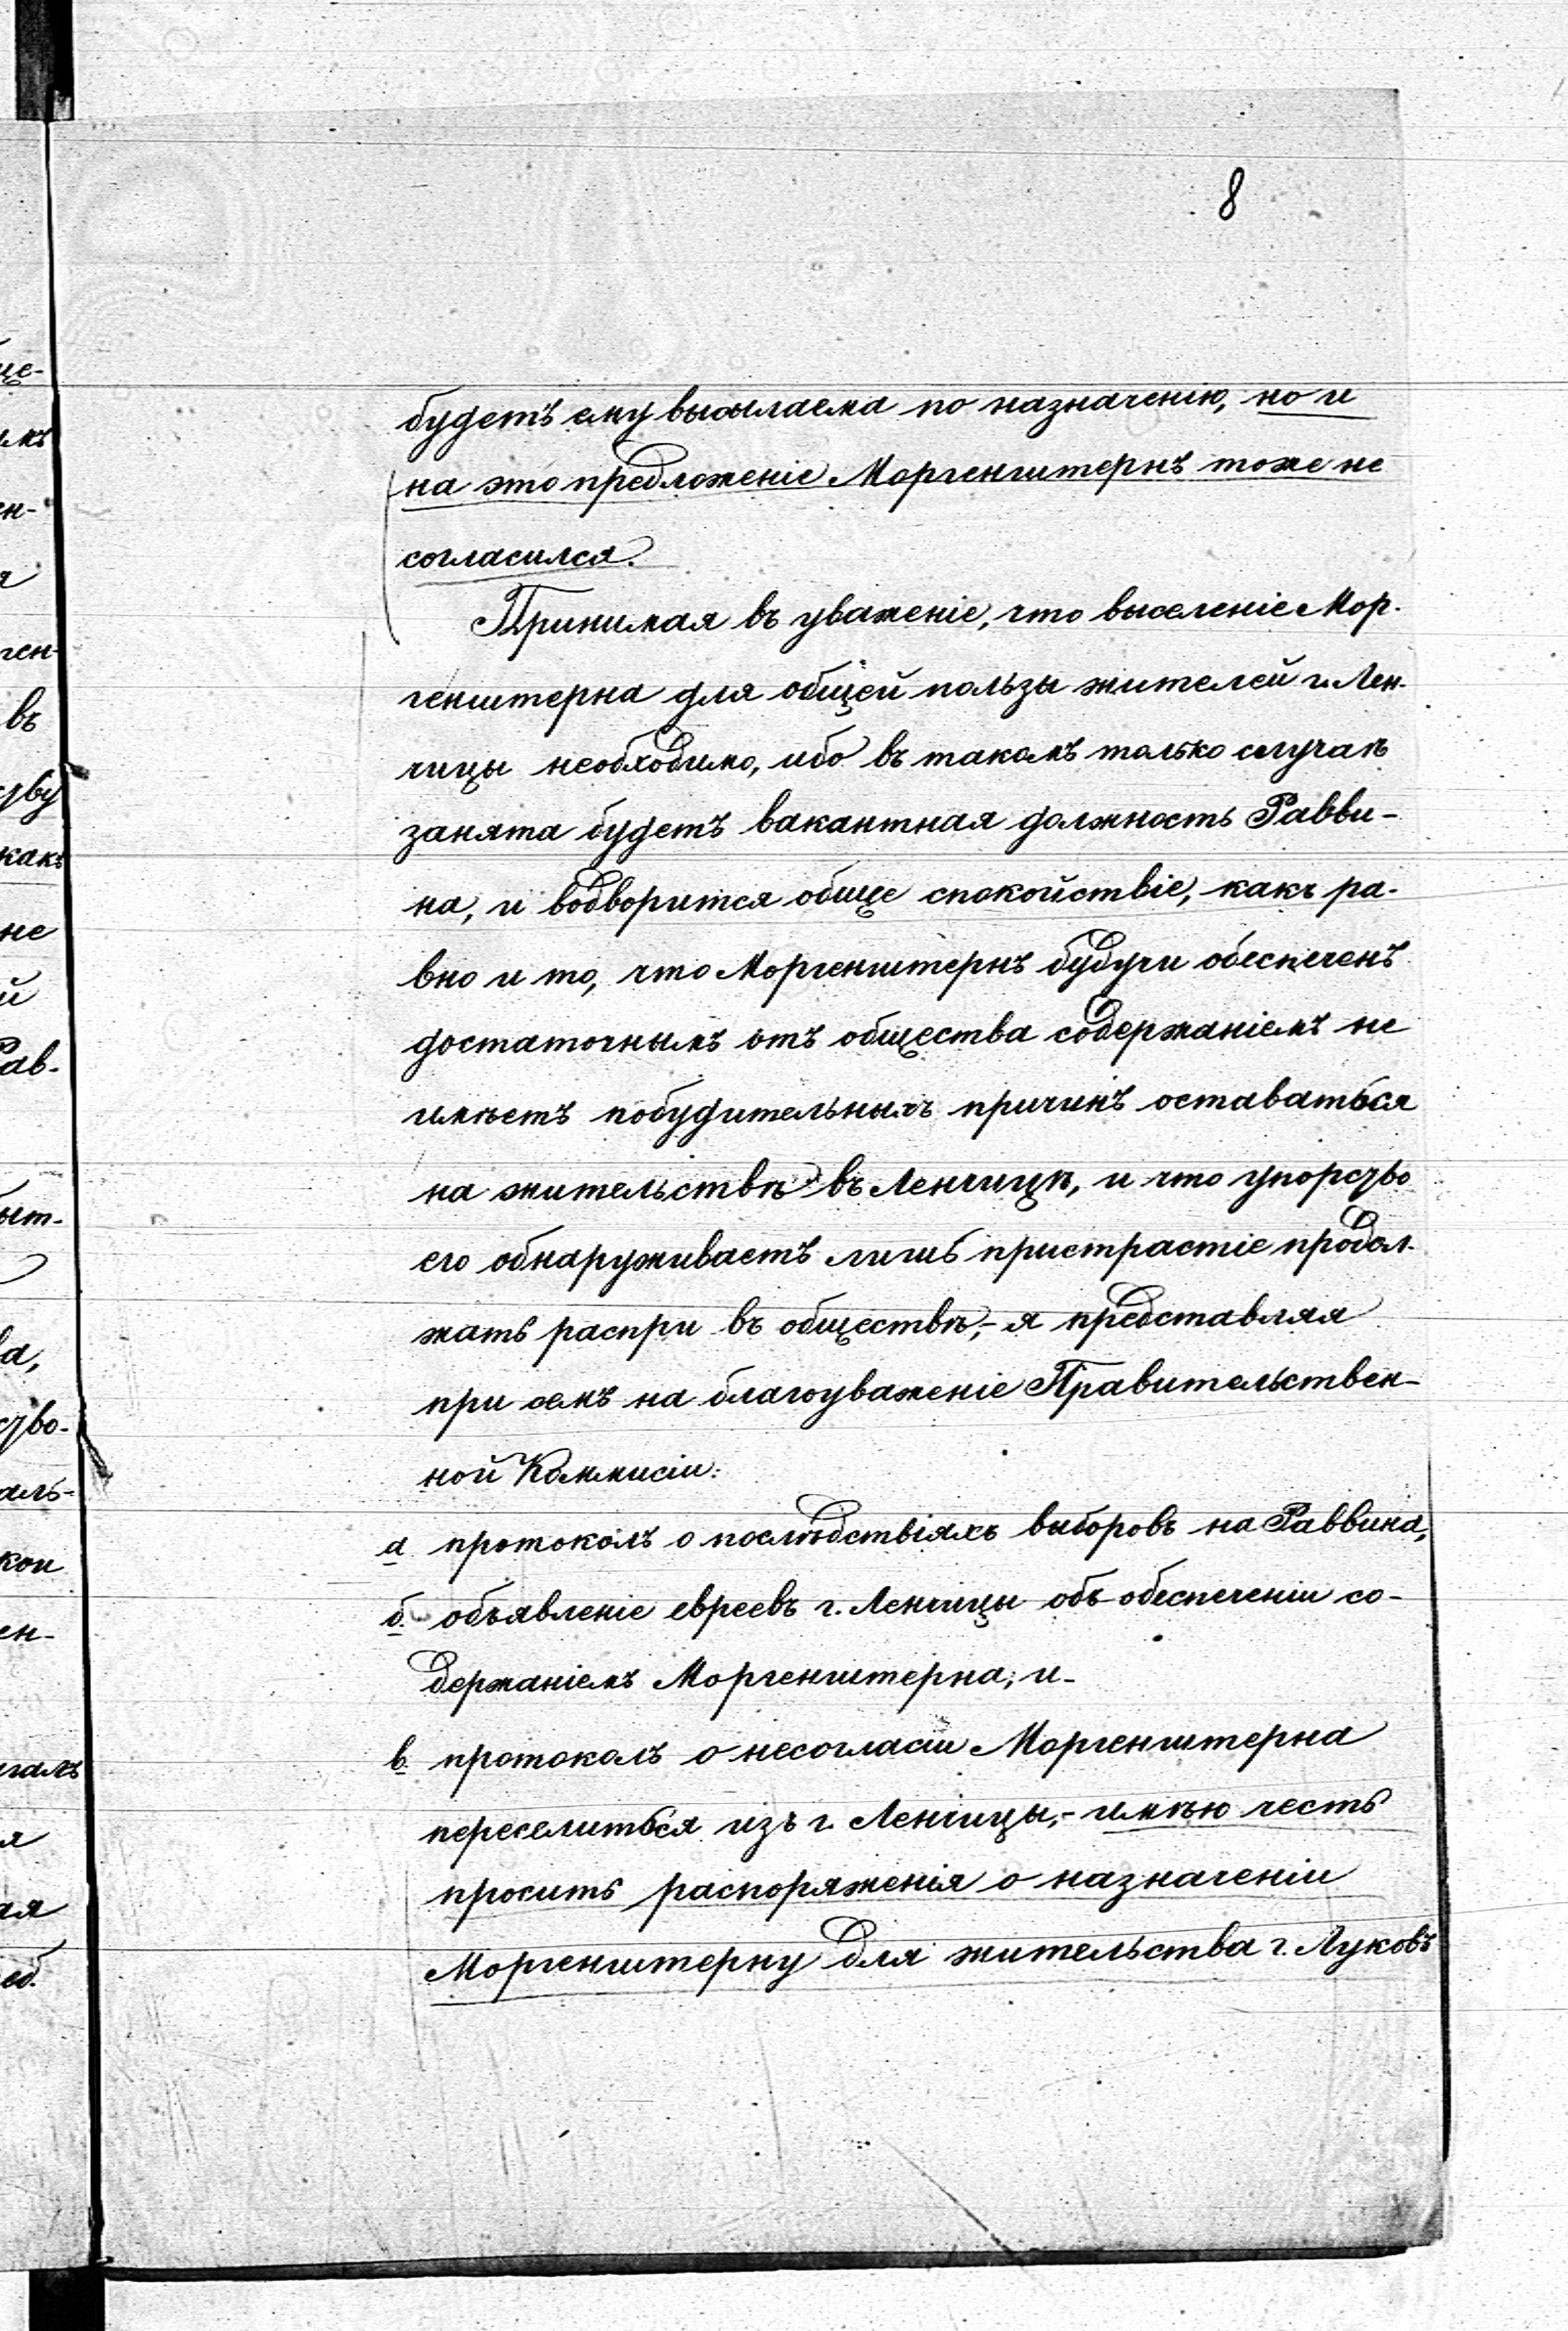 8
будетъ ему высылаема по назначенію, но и
на это предложеніе Моргенштернъ тоже не
согласился.
Принимая въ уваженіе, что выселеніе Мор-
генштерна для общей пользы жителей г. Лен-
чицы необходимо, ибо въ такомъ только случаѣ
занята будетъ вакантная должность Равви-
на, и водворится обще спокойствіе, какъ ра-
вно и то, что Моргенштернъ будучи обеспеченъ
достаточнымъ отъ общества содержаніемъ не
имѣетъ побудительныхъ причинъ оставаться
на жительствѣ въ Ленчицѣ, и что упорство
его обнаруживаетъ лишь пристрастіе продол-
жать распри въ обществѣ,- я представляя
при семъ на благоуваженіе Правительствен-
ной Коммисіи:
а протоколъ о послѣдствіяхъ выборовъ на Раввина,
б. объявленіе евреевъ г. Ленчицы объ обеспеченіи со-
держаніемъ Моргенштерна, и-
в. протоколъ о несогласіи Моргенштерна
переселиться изъ г. Ленчицы,- имѣю честь
просить распоряженія о назначеніи
Моргенштерну для жительства г. Луковъ
ще-
ен-
ген-
въ
какъ
не
й
Рав-
быт-
ва,
ство-
аль-
кои
ен-
я
ая